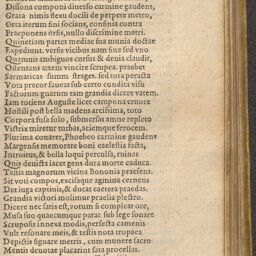 Dissona componi diverso carmine gaudens,
Grata nimis flexu docili de perpete metro,
Orsa iterum fini socians, confinia contra
Præponens orsis, nullo discrimine metri.
Quinetiam partes mediæ sua munia doctæ
Expediunt. versus vicibus nam fine sed vno
Quamuis ambiguos cursus & deuia claudit,
Ostentans artem vincire scrupea. præbet
Sarmaticas summ strages. sed tota peracta
Vota precor faueas sub certo condita visu
Factorum gnarum tam grandia dicere vatem.
Iam totiens Auguste licet campona cruore
Hostili post bella madens arctissima, toto
Corpora fusa solo, submersus amne repleto
Victrix miretur turbas, aciemque ferocem.
Plurima conarer, Phoebeo carmine gaudens
Margensis memorare boni cælestia facta,
Introitus, & bella loqui perculsa, ruinas
Quis deuicta iacet gens dura morte caduca.
Testis magnorum vicina Bononia præsens.
Sit voti compos, excisaque agmina cernens
Det iuga captiuis, & ducat cætera prædas.
Grandia victori molimur prælia plectro.
Dicere nec satis est, votum si compleat ore,
Musa suo quæcumque parat sub lege sonare
Scruposis innexa modis, perfecta camenis
Vult resonare meis, & testis nota tropæa
Depictis signare metris, cum munere sacro
Mentis deuotæ placarint fata procellas.